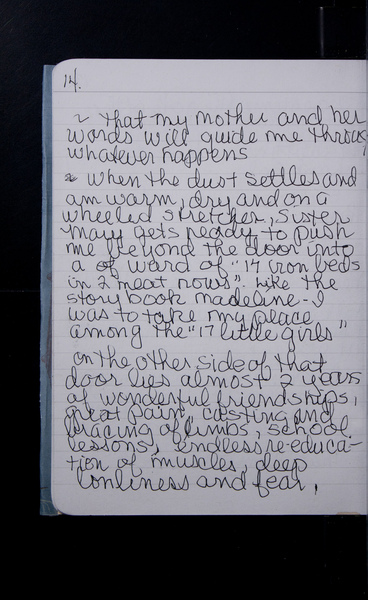 14.
~ that my mother and her
words will guide me throug
whatever happens
* When the dust settles and
am warm, dry and on a
wheeled stretcher, Sister
Mary gets ready to push
me beyond the door into
a of ward of "17 iron beds
in 2 neat rows". Like the
story book Madeline - I
was to take my place
among the "17 little girls"
on the other side of that
door lies almost 2 years
of wonderful friendships,
great pain, casting and
bracing of limbs, school
lessons, endless re-educa-
tion of muscles, deep
lonliness and fear,